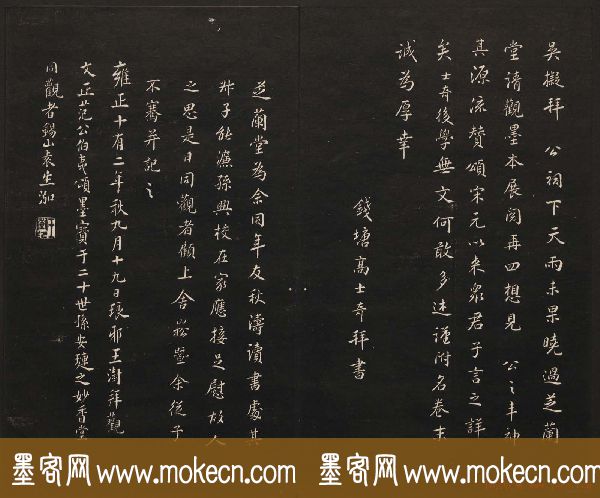 吴擬拜　公祠下天雨未果曉過芝蘭
堂請觀墨本展閱再四想見　公之丰神
其源流贊頌宋元以來衆君子言之詳
矣士奇後學無文何敢多述謹附名卷末
誠為厚幸
錢塘高士奇拜書
芝蘭堂為余同年友秋濤讀書處其
猶子能濂孫興梭在家應接足慰故人
之思是日同觀者顧上舍崧望余從子
不審并記之
雍正十有二年秋九月十九日琅邪王澍拜觀
文正范公伯夷頌墨寶于二十世孫安璉之妙香堂
同觀者錫山袁生
墨客网 www.mokecn.com 墨客网 www.mokecn.com